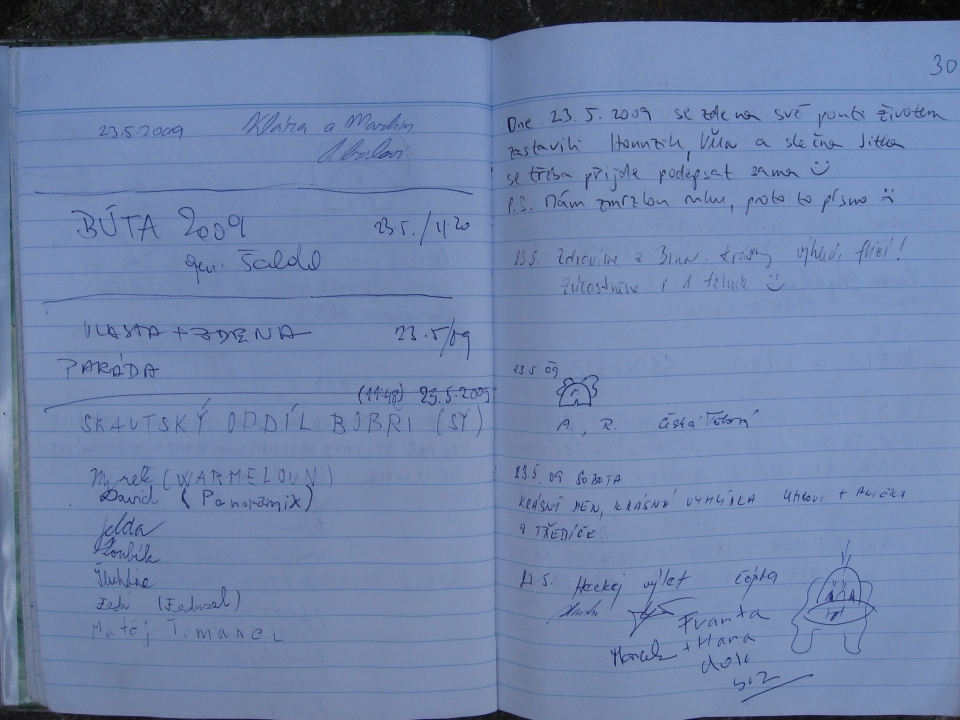 23.5.2009 Klára a Martin
BÚTA 2009 23.5./11.20
gen. Šaldo
VLASTA + ZDENA 23.5/09
PARÁDA
(11:48) 23.5.2009
SKAUTSKÝ ODDÍL BOBŘI (SY)
Mirek (WARMELOUN)
David (Panoramix)
Jelda
Matěj Tomanec
30
Dne 23.5.2009 se zde na své pouti životem
zastavili Honzík, Víťa a slečna Jitka
se třeba přijde podepsat sama
P.S. Mám zmrzlou ruku, proto to písmo
23.5. Zdravíme z Brna. Krásný výhled,
i 1
23.5.09
A., R. Česká Třebová
23.5.09 SOBOTA
KRÁSNÝ DEN, KRÁSNÁ VYHLÍDKA + ALIČKA
Z TŘEBÍČE.
23.5. Heckej výlet
Franta
Marek + Hana